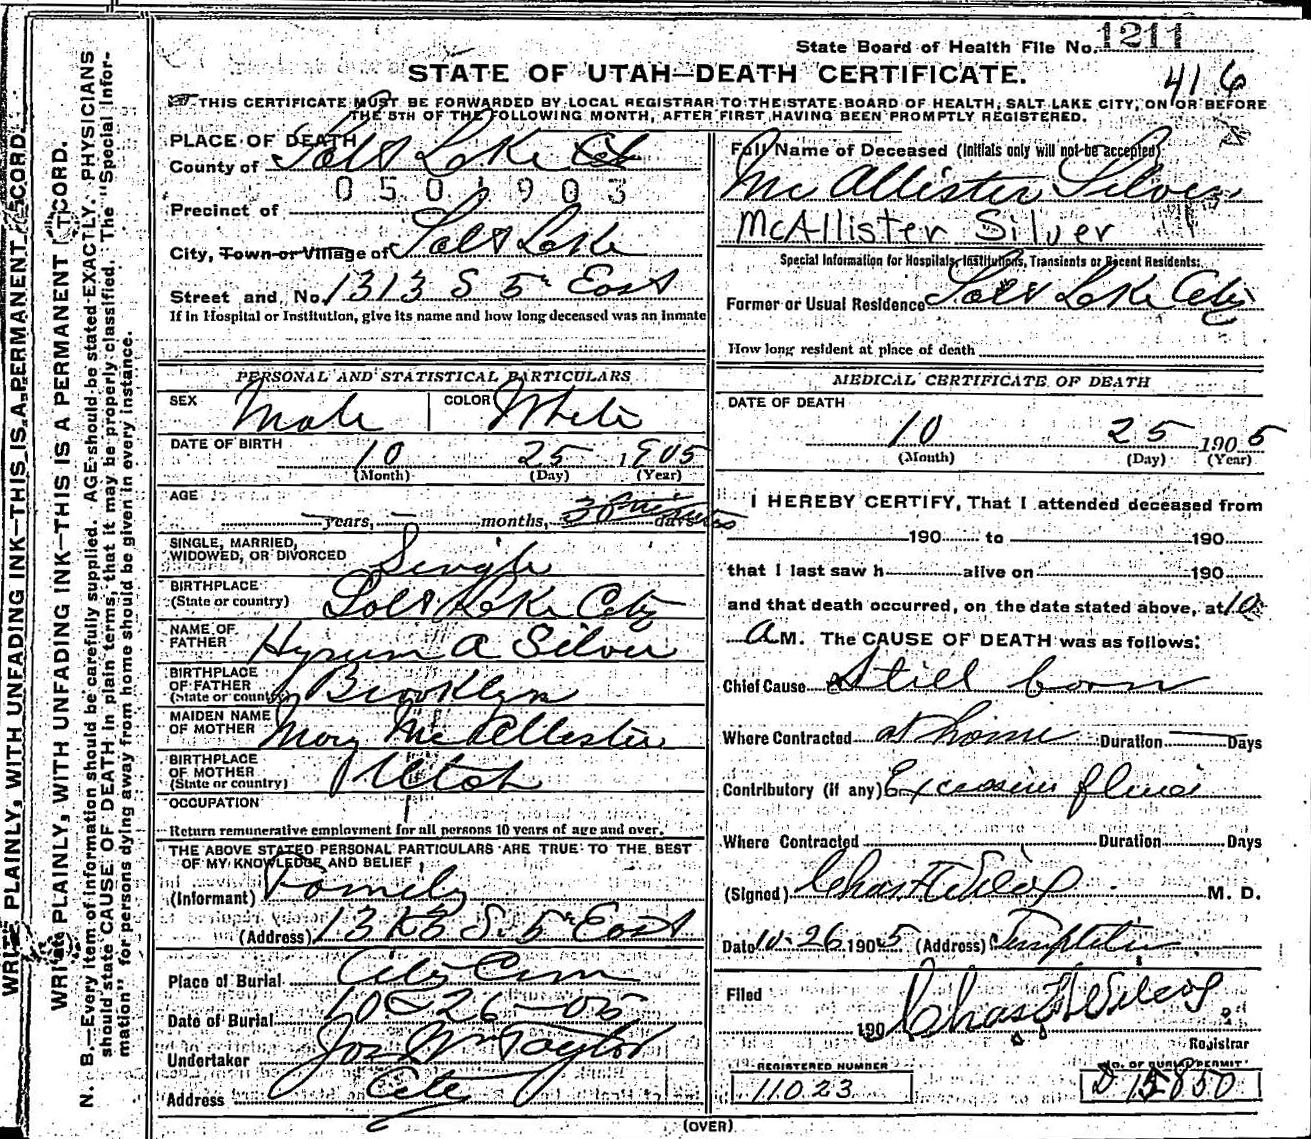 State Board of Health File No. 1211
416
STATE OF UTAH—DEATH CERTIFICATE.
THIS CERTIFICATE MUST BE FORWARDED BY LOCAL REGISTRAR TO THE STATE BOARD OF HEALTH, SALT LAKE CITY, ON OR BEFORE
THE 5TH OF THE FOLLOWING MONTH, AFTER FIRST HAVING BEEN PROMPTLY REGISTERED.
PLACE OF DEATH
County of Salt Lake
0501903
Precinct of
City, Town or Village of Salt Lake
Street and No. 1313 S 5th East
If in Hospital or Institution, give its name and how long deceased was an inmate
Full Name of Deceased (Initials only will not be accepted)
McAllister Silver
McAllister Silver
Special Information for Hospitals, Institutions, Transients or Recent Residents:
Former or Usual Residence Salt Lake City
How long resident at place of death
PERSONAL AND STATISTICAL PARTICULARS
SEX Male COLOR White
DATE OF BIRTH
10 25 1905
(Month) (Day) (Year)
AGE
years, months, 30 minutes days
SINGLE, MARRIED,
WIDOWED, OR DIVORCED Single
BIRTHPLACE
(State or country) Salt Lake City
NAME OF
FATHER Hyrum A Silver
BIRTHPLACE
OF FATHER
(State or country) Brooklyn
MAIDEN NAME
OF MOTHER Mary McAllister
BIRTHPLACE
OF MOTHER
(State or country) Utah
OCCUPATION
Return remunerative employment for all persons 10 years of age and over.
THE ABOVE STATED PERSONAL PARTICULARS ARE TRUE TO THE BEST
OF MY KNOWLEDGE AND BELIEF
(Informant) Family
(Address) S. 5th East
Place of Burial City Cem
Date of Burial 10-26-05
Undertaker Jos Wm Taylor
Address City
MEDICAL CERTIFICATE OF DEATH
DATE OF DEATH
10 25 1905
(Month) (Day) (Year)
I HEREBY CERTIFY, That I attended deceased from
190 to 190
that I last saw h alive on 190
and that death occurred, on the date stated above, at 10
A M. The CAUSE OF DEATH was as follows:
Chief Cause Still born
Where Contracted at home Duration Days
Contributory (if any) Excessive
Where Contracted Duration Days
(Signed) Chas F Wilcox M. D.
Date 10-26 1905 (Address) Templeton
Filed
190 Chas F Wilcox
Registrar
REGISTERED NUMBER
11023
NO. OF BURIAL PERMIT
D 15850
(OVER)
WRITE PLAINLY, WITH UNFADING INK—THIS IS A PERMANENT RECORD.
WRITE PLAINLY, WITH UNFADING INK—THIS IS A PERMANENT RECORD.
N. B.—Every item of information should be carefully supplied. AGE should be stated EXACTLY. PHYSICIANS
should state CAUSE OF DEATH in plain terms, that it may be properly classified. The "Special Infor-
mation" for persons dying away from home should be given in every instance.